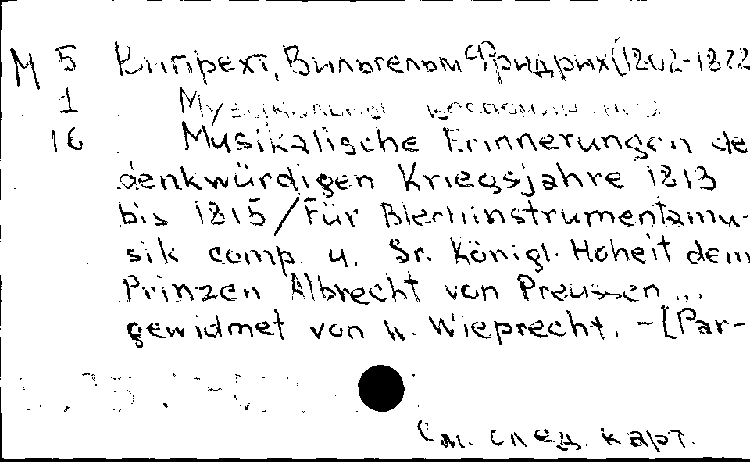 М 5 Випрехт, Вильгельм Фридрих (1802-1872
1 Музыкальные воспоминания
16 Musikalische Erinnerungen de
denkwürdigen Kriegsjahre 1813
bis 1815/Für Blechinstrumentamu-
sik comp. u. Sr. Königl. Hoheit dem
Prinzen Albrecht von Preussen...
gewidmet von W. Wieprecht. -[Par-
См. след. карт.